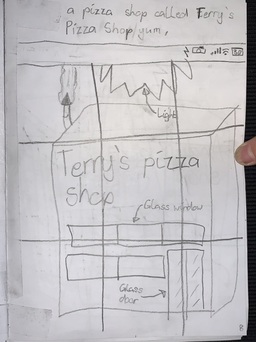 a pizza shop called Terry's
Pizza Shop/yum,
Light
Terry's pizza
shop
Glass window
Glass
door